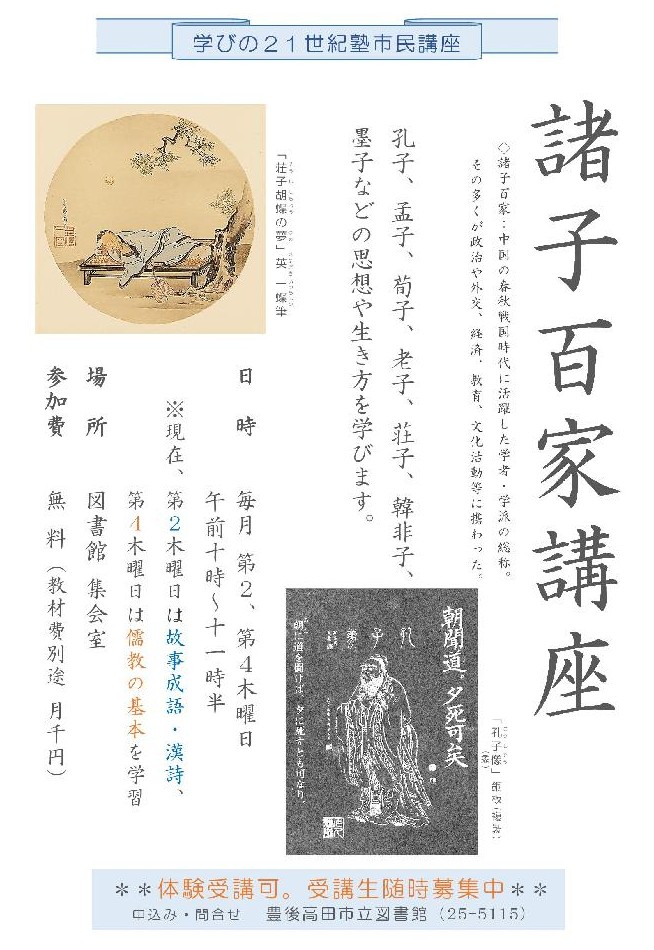 学びの21世紀塾市民講座
諸子百家講座
◇諸子百家:中国の春秋戦国時代に活躍した学者・学派の総称。
その多くが政治や外交、経済、教育、文化活動等に携わった。
孔子、孟子、荀子、老子、荘子、韓非子、
墨子などの思想や生き方を学びます。
「荘子胡蝶の夢」英 一蝶筆
朝聞道、夕死可矣
孔子像
朝に道を聞けば、夕に死すとも可なり。
「孔子像」
日時 毎月 第2、第4木曜日
午前十時~十一時半
※現在、第2木曜日は故事成語・漢詩、
第4木曜日は儒教の基本を学習
場所 図書館 集会室
参加費 無料(教材費別途 月千円)
**体験受講可。受講生随時募集中**
申込み・問合せ 豊後高田市立図書館(25-5115)